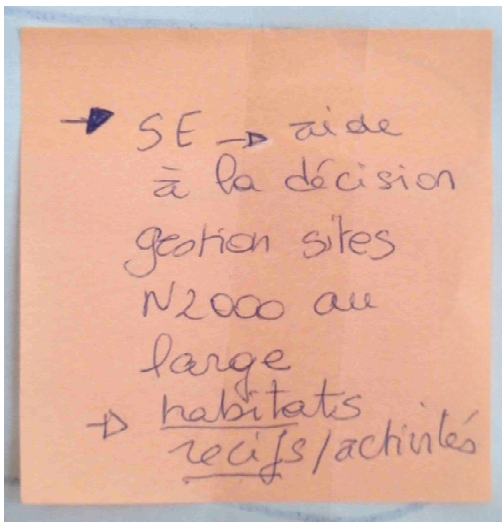 → SE → aide
à la décision
gestion sites
N2000 au
large
→ habitats
recifs/activités